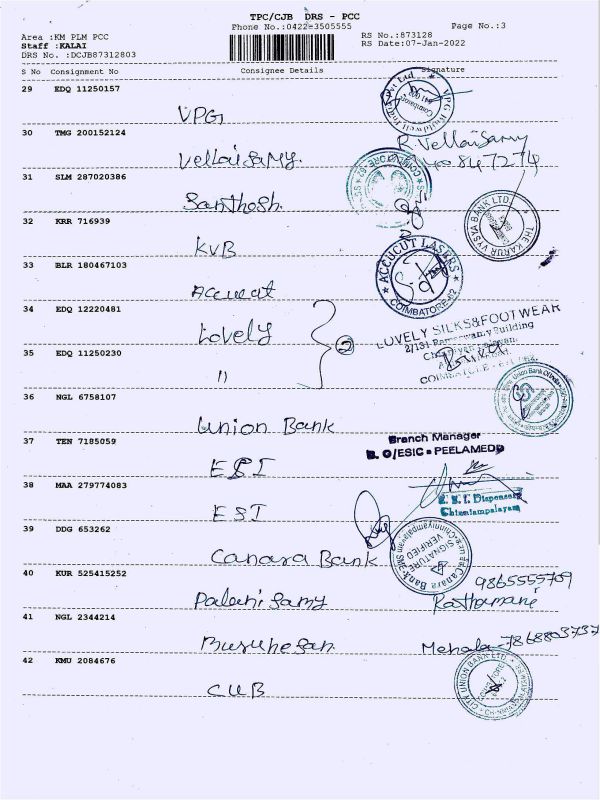 TPC/CJB DRS - PCC
Phone No.:0422-3505555
Page No.:3
Area :KM PLM PCC
RS No.:873128
Staff :KALAI
RS Date:07-Jan-2022
DRS No. :DCJB87312803
S No Consignment No Consignee Details Signature
29 EDQ 11250157
VPG
30 TMG 200152124
R. Vellaisamy
Vellaisamy.
31 SLM 287020386
Santhosh.
32 KRR 716939
THE KARUR VYSYA BANK LTD.
KVB
33 BLR 180467103
ACCUCUT LASERS
COIMBATORE
Accucut
34 EDQ 12220481
Lovely
2
LOVELY SILKS&FOOTWEAR
2/131
Building
35 EDQ 11250230
"
36 NGL 6758107
Union Bank
37 TEN 7185059
Branch Manager
B. O/ESIC PEELAMEDU
ESI
38 MAA 279774083
E. S. I. Dispensary
Chinniampalayam
ESI
39 DDG 653262
SIGNATURE VERIFIED
Canara Bank
Canara Bank
40 KUR 525415252
9865555709
Palanisamy
41 NGL 2344214
Mehala 7868803737
42 KMU 2084676
CITY UNION BANK LTD.
CUB